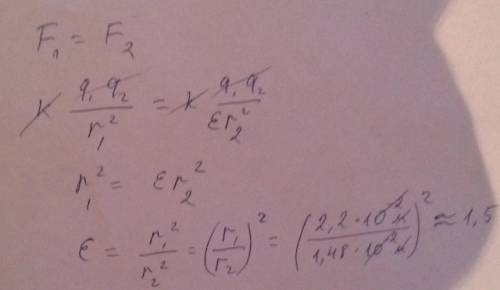 F₁ = F₂
k q₁q₂/r₁² = k q₁q₂/εr₂²
r₁² = εr₂²
ε = r₁²/r₂² = (r₁/r₂)² = (2,2·10⁻²м/1,48·10⁻²м)² ≈ 1,5